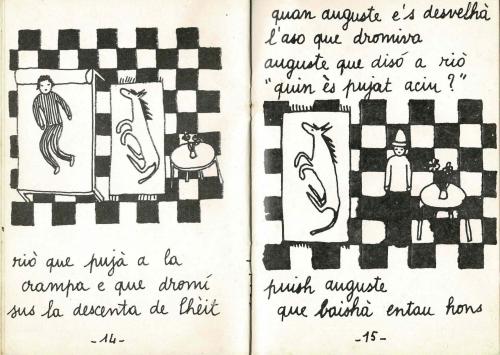 riò que pujà a la
crampa e que dromí
sus la descenta de lhèit
-14-
quan auguste e's desvelhà
l'aso que dromiva
auguste que disó a riò
"quin ès pujat aciu?"
puish auguste
que baishà entau hons
-15-